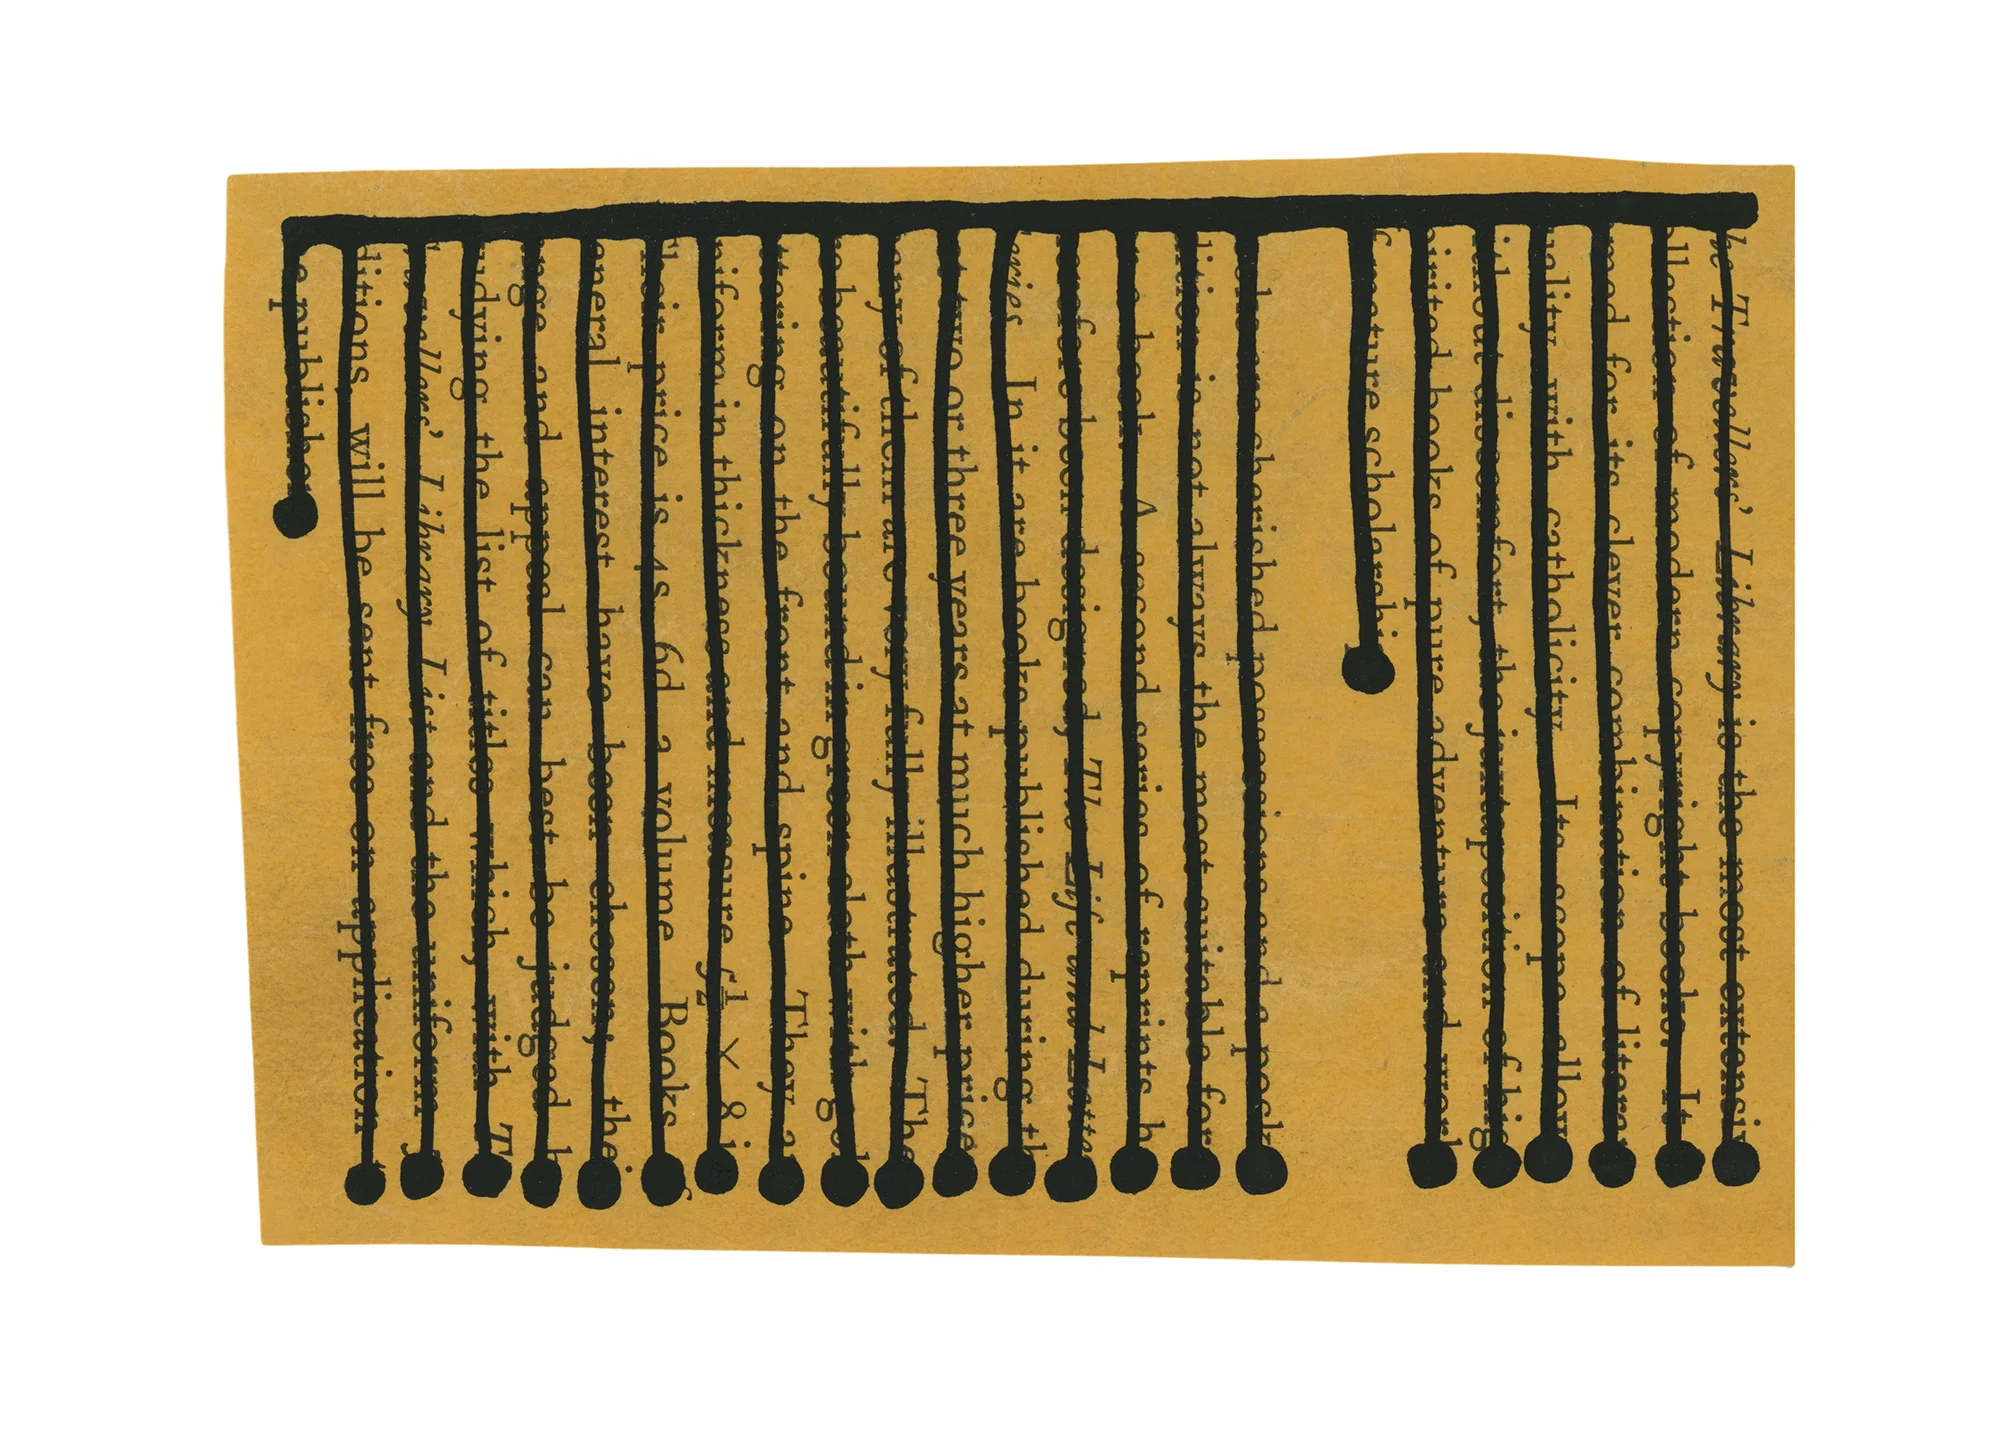 he Travellers' Library is the most extensiv
llection of modern copyright books. It
med for its clever combination of literar
uality with catholicity. Its scope allow
ithout discomfort, the juxtaposition of hig
pirited books of pure adventure and work
f mature scholarship
are cherished possessions and a pock
dition is not always the most suitable for
book. A second series of reprints h
erefore been designed, The Life and Lette
eries. In it are books published during th
t two or three years at much higher price
any of them are very fully illustrated. The
re beautifully bound in green cloth with gol
ttering on the front and spine. They a
niform in thickness and measure 5½ × 8 i
heir price is 4s. 6d. a volume. Books
eneral interest have been chosen; the
nge and appeal can best be judged b
udying the list of titles which, with T
avellers' Library List and the uniform
ditions, will be sent free on application
e publisher